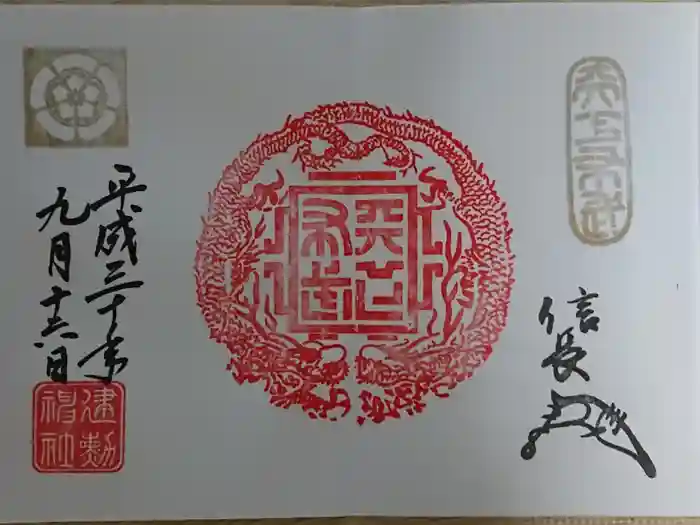 天下布武
信長
天下布武
平成三十年
九月十六日
建勲神社